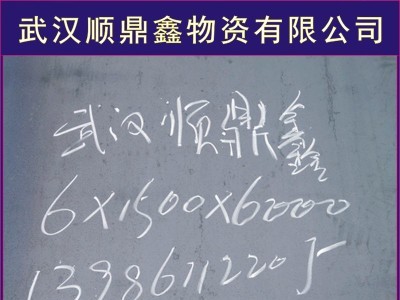 武汉顺鼎鑫物资有限公司
武汉顺鼎鑫
6×1500×6000
13986112205